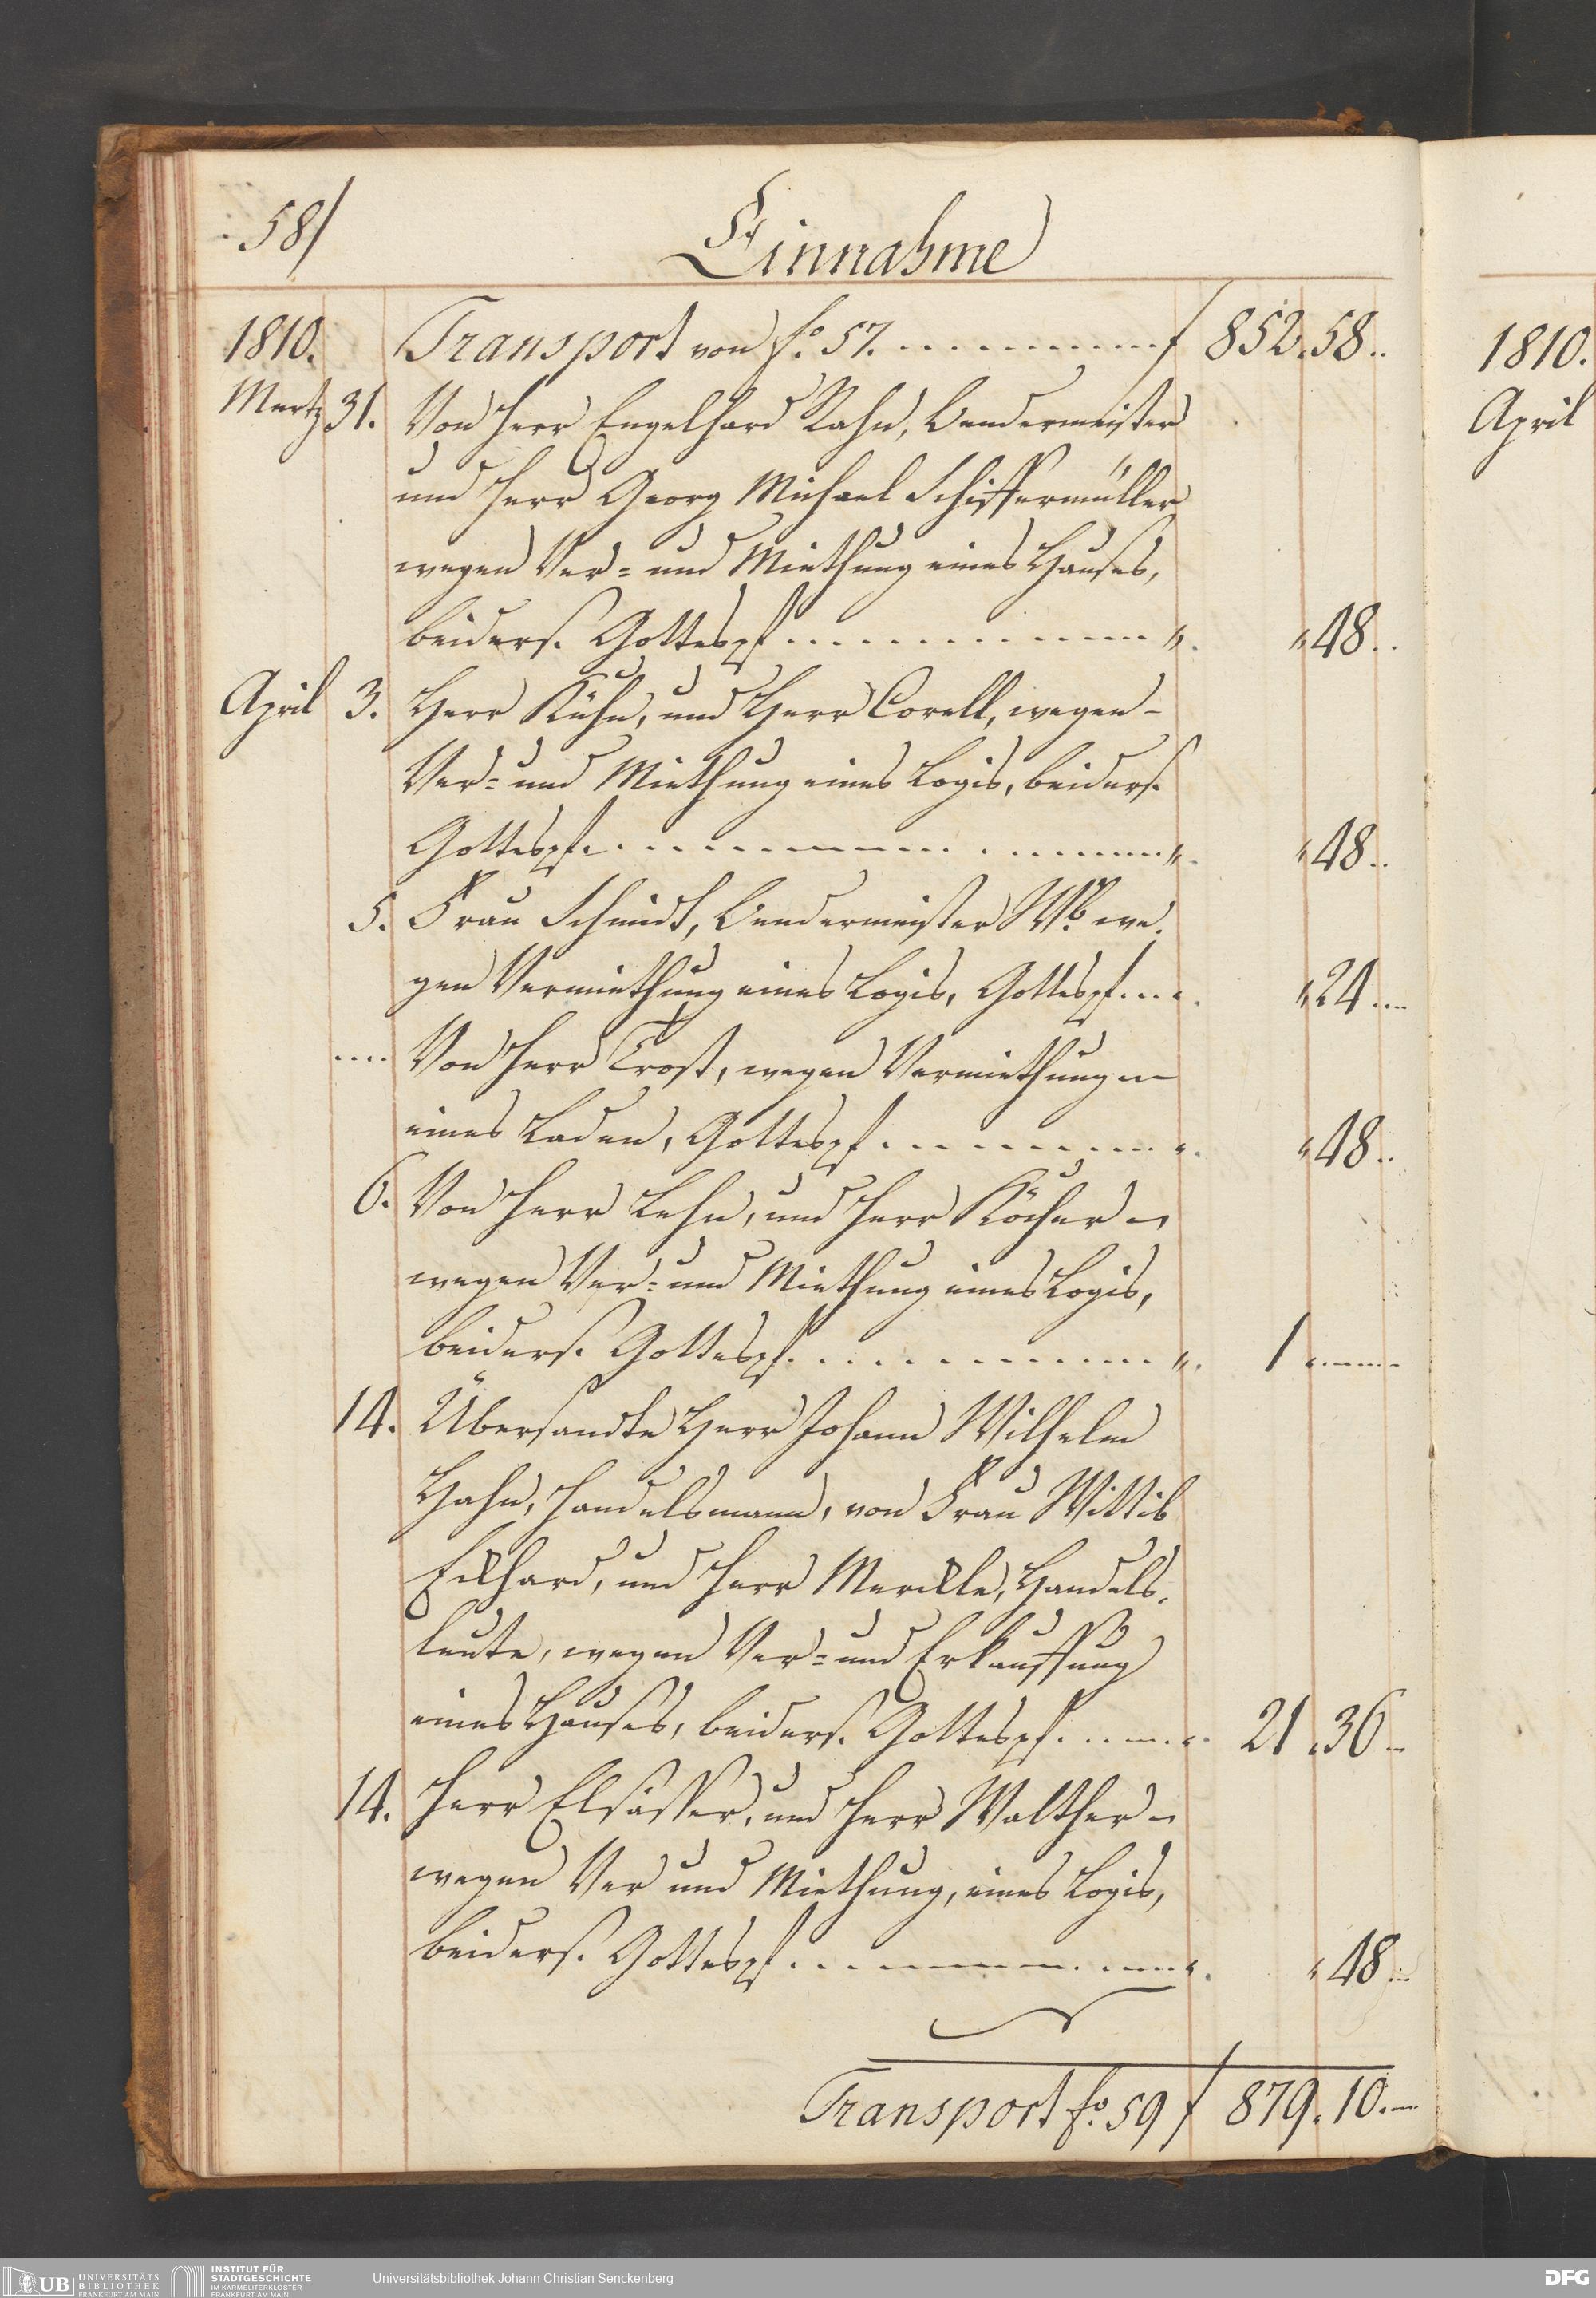 58/
Einnahme
1810. Transport von fo. 57. f 852. 58.
Mertz 31. Von Herr Engelhard Rahn, Bendermeister
und Herr Georg Michael Schiffermüller
wegen Ver- und Miethung eines Hauses,
beiders. Gottespf. " 48.
April 3. Herr Kühn, und Herr Corell, wegen
Ver- und Miethung eines Logis, beiders.
Gottespf. " 48.
5. Frau Schmidt, Bendermeister Wb. we-
gen Vermiethung eines Logis, Gottespf. " 24.
Von Herr Trost, wegen Vermiethung
eines Laden, Gottespf. " 48.
6. Von Herr Lehn, und Herr Köcher
wegen Ver- und Miethung eines Logis,
beiders. Gottespf. 1
14. Übersandte Herr Johann Wilhelm
Hahn, Handelsmann, von Frau Wittib
Eckhard, und Herr Merckle, Handels-
leute, wegen Ver- und Erkauffung
eines Hauses, beiders. Gottespf. 21. 36
14. Herr Elsässer, und Herr Walther
wegen Ver und Miethung, eines Logis,
beiders. Gottespf. " 48.
Transport fo. 59 f 879. 10.
1810.
April
UB UNIVERSITÄTS
BIBLIOTHEK
FRANKFURT AM MAIN
INSTITUT FÜR
STADTGESCHICHTE
IM KARMELITERKLOSTER
FRANKFURT AM MAIN
Universitätsbibliothek Johann Christian Senckenberg
DFG